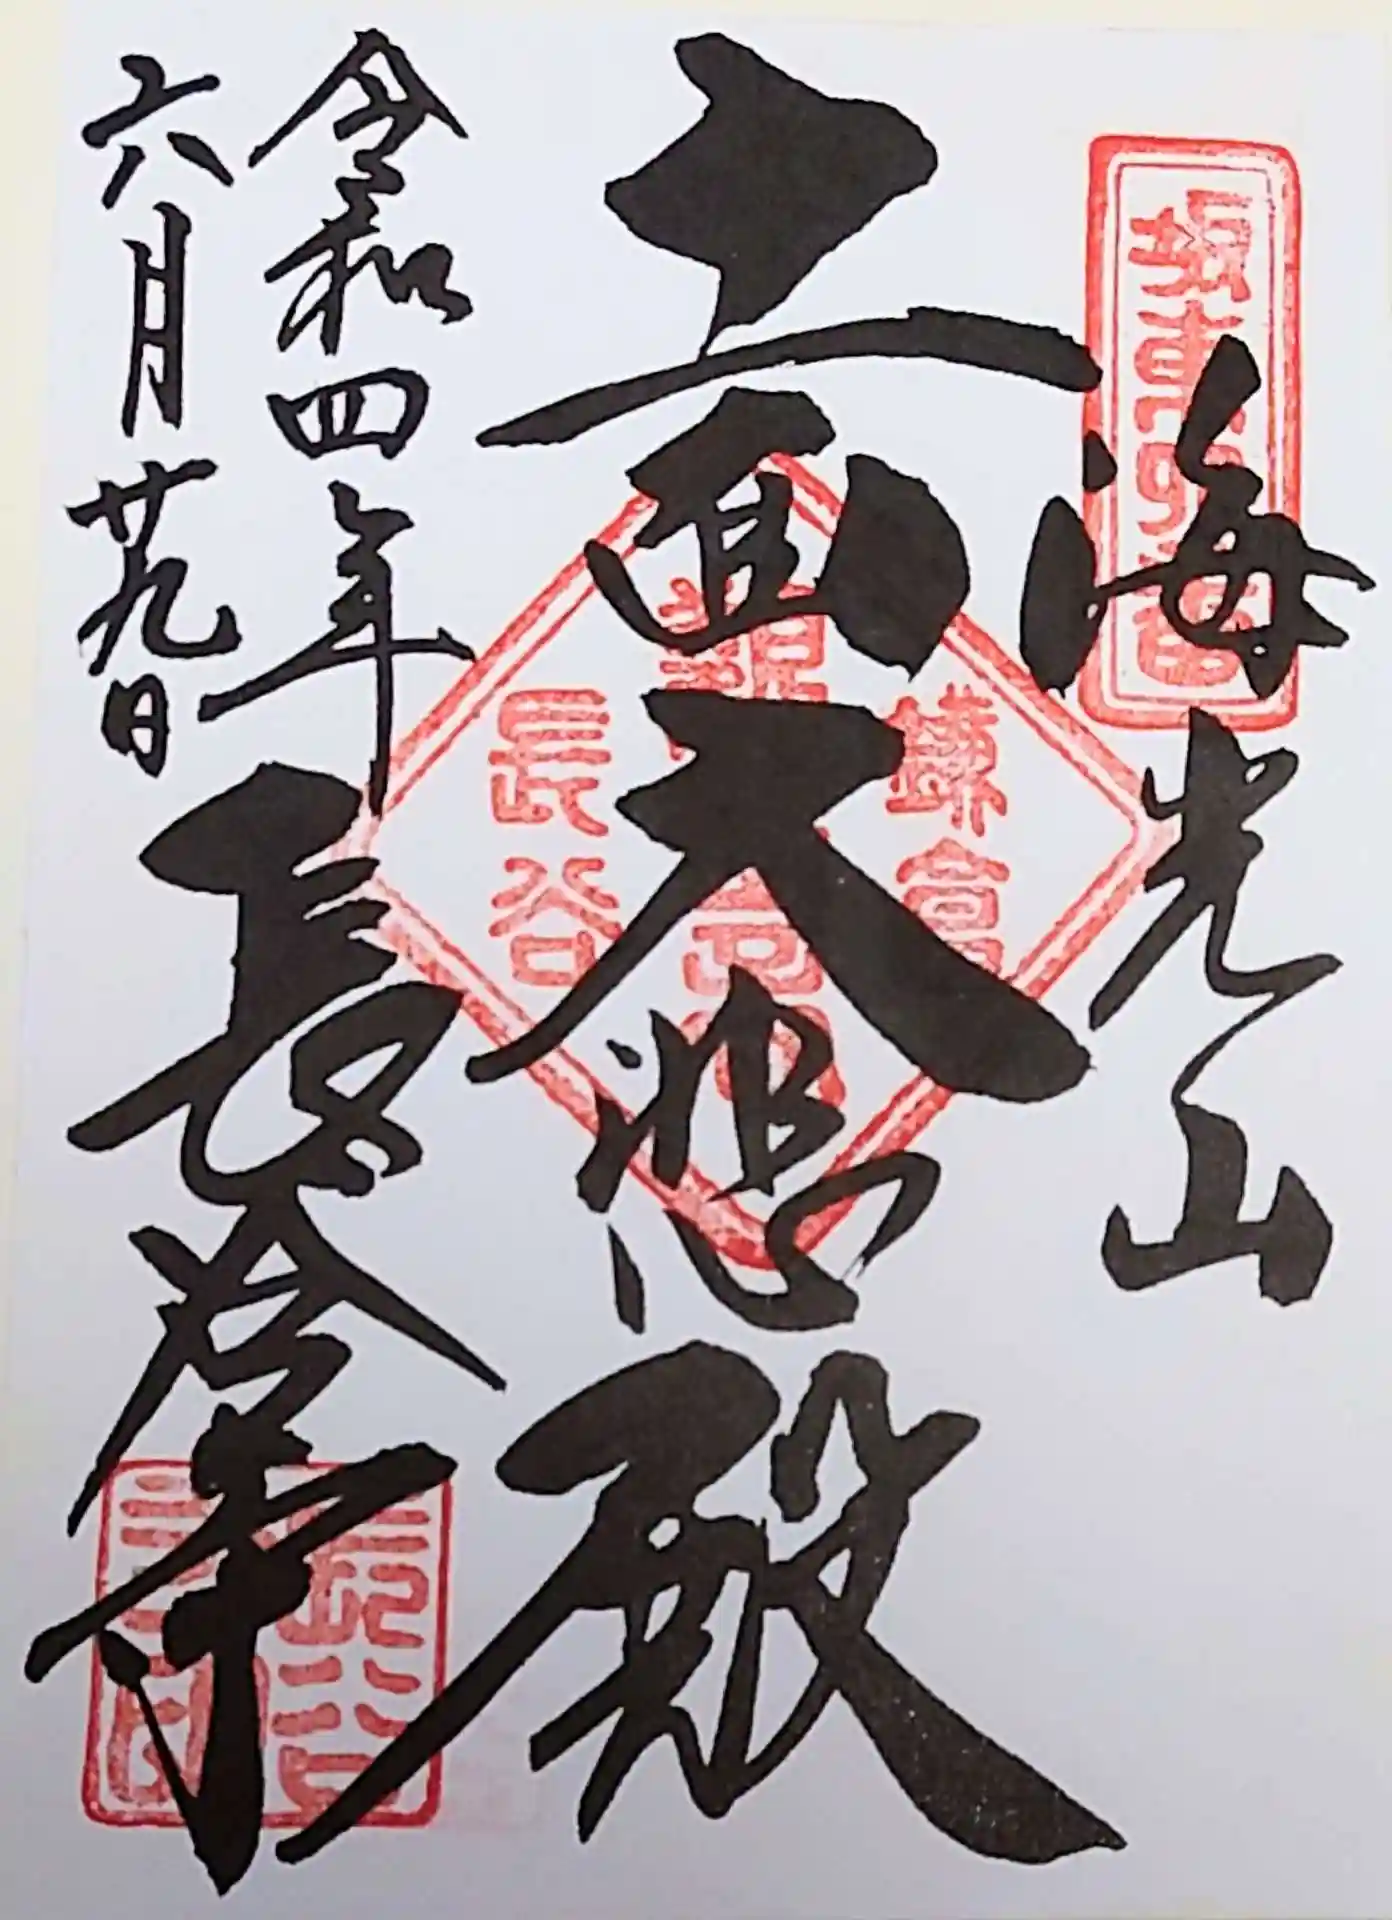 海光山
十一面大悲殿
令和四年
六月廿九日
長谷寺
坂東四番
鎌倉
長谷